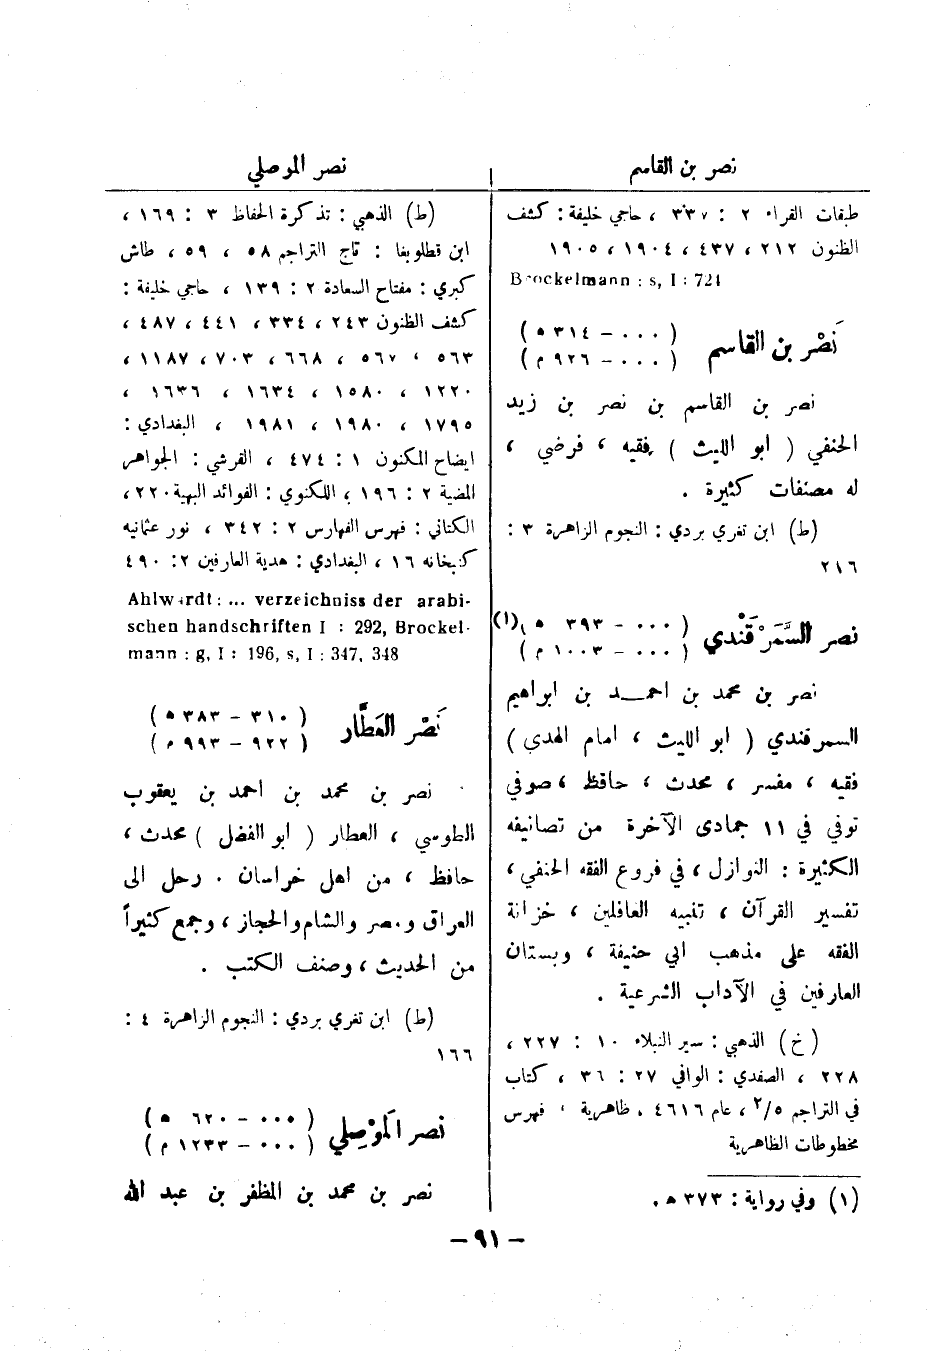 نصر بن القاسم
طبقات القراء ٢ : ٣٣٧ ، حاجي خليفة : كشف
الظنون ٢١٢ ، ٤٣٧ ، ١٩٠٤ ، ١٩٠٥
Brockelmann : s, I : 721
نَصْر بن القاسم ( ٠٠٠ – ٣١٤ ه )
( ٠٠٠ – ٩٢٦ م )
نصر بن القاسم بن نصر بن زيد
الحنفي ( ابو الليث ) فقيه ، فرضي ،
له مصنفات كثيرة .
(ط) ابن تغري بردي : النجوم الزاهرة ٣ :
٢١٦
نصر السَّمَرْقَندي ( ٠٠٠ – ٣٩٣ ه )(١)
( ٠٠٠ – ١٠٠٣ م )
نصر بن محمد بن احمد بن ابراهيم
السمرقندي ( ابو الليث ، امام الهدى )
فقيه ، مفسر ، محدث ، حافظ ، صوفي
توفي في ١١ جمادى الآخرة من تصانيفه
الكثيرة : النوازل ، في فروع الفقه الحنفي ،
تفسير القرآن ، تنبيه الغافلين ، خزانة
الفقه على مذهب ابي حنيفة ، وبستان
العارفين في الآداب الشرعية .
(خ) الذهبي : سير النبلاء ١٠ : ٢٢٧ ،
٢٢٨ ، الصفدي : الوافي ٢٧ : ٣٦ ، كتاب
في التراجم ٢/٥ ، عام ٤٦١٦ ، ظاهرية ، فهرس
مخطوطات الظاهرية
(١) وفي رواية : ٣٧٣ ه .
نصر الموصلي
(ط) الذهبي : تذكرة الحفاظ ٣ : ١٦٩ ،
ابن قطلوبغا : تاج التراجم ٥٨ ، ٥٩ ، طاش
كبري : مفتاح السعادة ٢ : ١٣٩ ، حاجي خليفة :
كشف الظنون ٢٤٣ ، ٣٣٤ ، ٤٤١ ، ٤٨٧ ،
٥٦٣ ، ٥٦٧ ، ٦٦٨ ، ٧٠٣ ، ١١٨٧ ،
١٢٢٠ ، ١٥٨٠ ، ١٦٣٤ ، ١٦٣٦ ،
١٧٩٥ ، ١٩٨٠ ، ١٩٨١ ، البغدادي :
ايضاح المكنون ١ : ٤٧٤ ، القرشي : الجواهر
المضية ٢ : ١٩٦ ، اللكنوي : الفوائد البهية ٢٢٠ ،
الكتاني : فهرس الفهارس ٢ : ٣٤٢ ، نور عثمانيه
كتبخانه ١٦ ، البغدادي : هدية العارفين ٢ : ٤٩٠
Ahlwardt : ... verzeichniss der arabi-
schen handschriften I : 292, Brockel-
mann : g, I : 196, s, I : 347, 348
نَصْر العَطَّار ( ٣١٠ – ٣٨٣ ه )
( ٩٢٢ – ٩٩٣ م )
نصر بن محمد بن احمد بن يعقوب
الطوسي ، العطار ( ابو الفضل ) محدث ،
حافظ ، من اهل خراسان . رحل الى
العراق ومصر والشام والحجاز ، وجمع كثيراً
من الحديث ، وصنف الكتب .
(ط) ابن تغري بردي : النجوم الزاهرة ٤ :
١٦٦
نصر المَوْصِلي ( ٠٠٠ – ٦٢٠ ه )
( ٠٠٠ – ١٢٣٣ م )
نصر بن محمد بن المظفر بن عبد الله
– ٩١ –